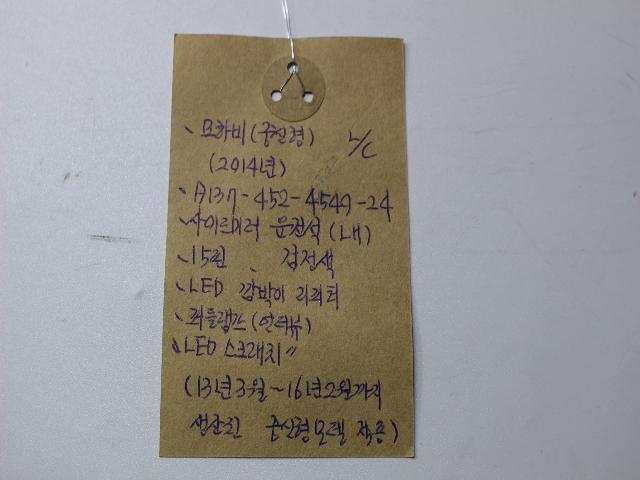 모하비(중신형) L/C
(2014년)
A137-452-4549-24
사이드미러 운전석(LH)
15핀 검정색
LED 깜박이 리피터
퍼들램프(안터뷰)
"LED 스크래치"
(13년3월~16년2월까지
생산된 중신형모델 적용)